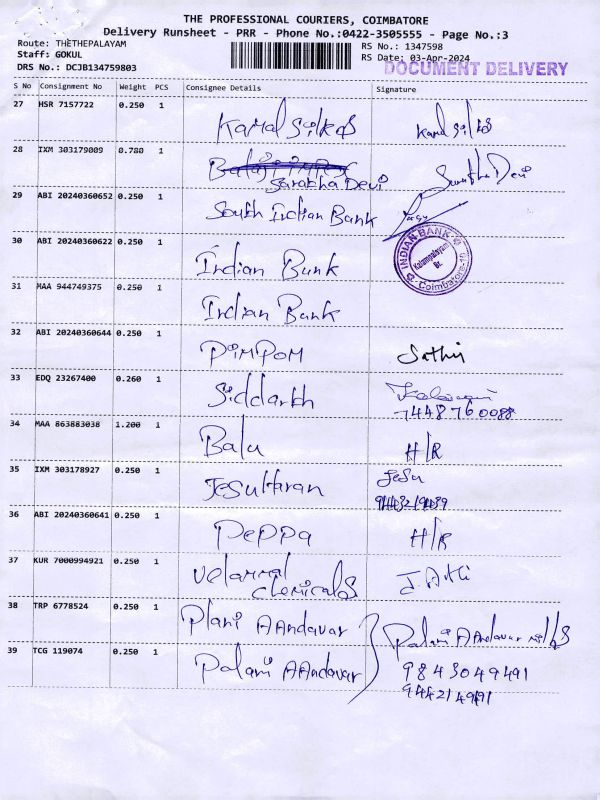 THE PROFESSIONAL COURIERS, COIMBATORE
Delivery Runsheet - PRR - Phone No.:0422-3505555 - Page No.:3
Route: THETHEPALAYAM
Staff: GOKUL
DRS No.: DCJB134759803
RS No.: 1347598
RS Date: 03-Apr-2024
DOCUMENT DELIVERY
S No Consignment No Weight PCS Consignee Details Signature
27 HSR 7157722 0.250 1 Kamal Silks Kamal Silks
28 IXM 303179009 0.780 1
Sarakha Devi
29 ABI 20240360652 0.250 1 South Indian Bank
30 ABI 20240360622 0.250 1 Indian Bank
INDIAN BANK
Br.
Coimbatore-19
31 MAA 944749375 0.250 1 Indian Bank
32 ABI 20240360644 0.250 1 PIMPOM Sathis
33 EDQ 23267400 0.260 1 Siddarth
7448760088
34 MAA 863883038 1.200 1 Balu H/R
35 IXM 303178927 0.250 1 Jesuharan Jesu
36 ABI 20240360641 0.250 1 Peppa H/R
37 KUR 7000994921 0.250 1 Velammal
Chemicals
38 TRP 6778524 0.250 1 Plani AAndavar Palani AAndavar mills
39 TCG 119074 0.250 1 Palani AAndavar 9843049491